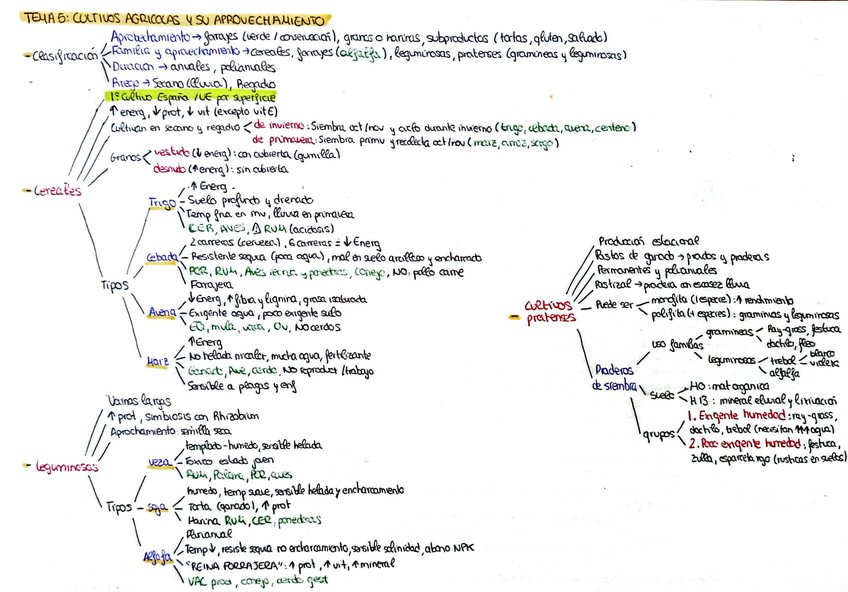 TEMA 5: CULTIVOS AGRICOLAS Y SU APROVECHAMIENTO
- Clasificación
Aprovechamiento → forrajes (verde / conservación), granos o harinas, subproductos (tortas, gluten, salvado)
Familia y aprovechamiento → cereales, forrajes (alfalfa), leguminosas, pratenses (gramíneas y leguminosas)
Duración → anuales, polianuales
Riego → Secano (lluvia), Regadío
- Cereales
1º Cultivo España / UE por superficie
↑ energ, ↓ prot, ↓ vit (excepto vit E)
Cultivan en secano y regadío
de invierno: Siembra oct/nov y ciclo durante invierno (trigo, cebada, avena, centeno)
de primavera: Siembra primv y recolecta oct/nov (maiz, arroz, sorgo)
Granos
vestido (↓ energ): con cubierta (gumilla)
desnudo (↑ energ): sin cubierta
Tipos
Trigo
↑ Energ.
Suelo profundo y drenado
Temp fria en inv, lluvia en primavera
CER, AVES, RUM (acidosis)
Cebada
2 carreras (cerveza), 6 carreras = ↓ Energ
Resistente sequía (poca agua), mal en suelo arcilloso y encharcado
POR, RUM, Aves y ponedoras, conejo, NO: pollo carne
Forrajera
Avena
↓ Energ, ↑ fibra y lignina, grasa insaturada
Exigente agua, poco exigente suelo
EQ, mula, vaca, OV, NO cerdos
Maiz
↑ Energ
No helada ni calor, mucha agua, fertilizante
Ganado, Ave, cerdo, NO reproduct / trabajo
Sensible a plagas y enf
- Leguminosas
Vainas largas
↑ prot, Simbiosis con Rhizobium
Aprochamiento: semilla seca
Tipos
Veza
templado-humedo, sensible helada
Tóxico estado joven
RUM, POR, aves
soja
humedo, temp suave, sensible helada y encharcamiento
Torta (ganado), ↑ prot
Harina RUM, CER, ponedoras
Alfalfa
Temp ↓, resiste sequia no encharcamiento, sensible salinidad, abono NPK
"REINA FORRAJERA": ↑ prot, ↑ vit, ↑ mineral
VAC prod, conejo, cerdo gest
- Cultivos pratenses
Producción estacional
Pastos de ganado → prados y praderas
Permanentes y polianuales
Pastizal → pradera con escasez lluvia
Puede ser
monofita (1 especie): ↑ rendimiento
polifita (+ especies): gramineas y leguminosas
Praderas de siembra
uso familias
gramineas
Ray-grass, festuca
dactilo, fleo
leguminosas
trebol
blanco
violeta
alfalfa
suelo
HO: mat organica
H13: mineral eluvial y lixiviación
grupos
1. Exigente humedad: ray-grass,
dactilo, trebol (necesitan ↑↑↑ agua)
2. Poco exigente humedad: festuca,
zulla, esparceta rojo (rusticas en suelos)